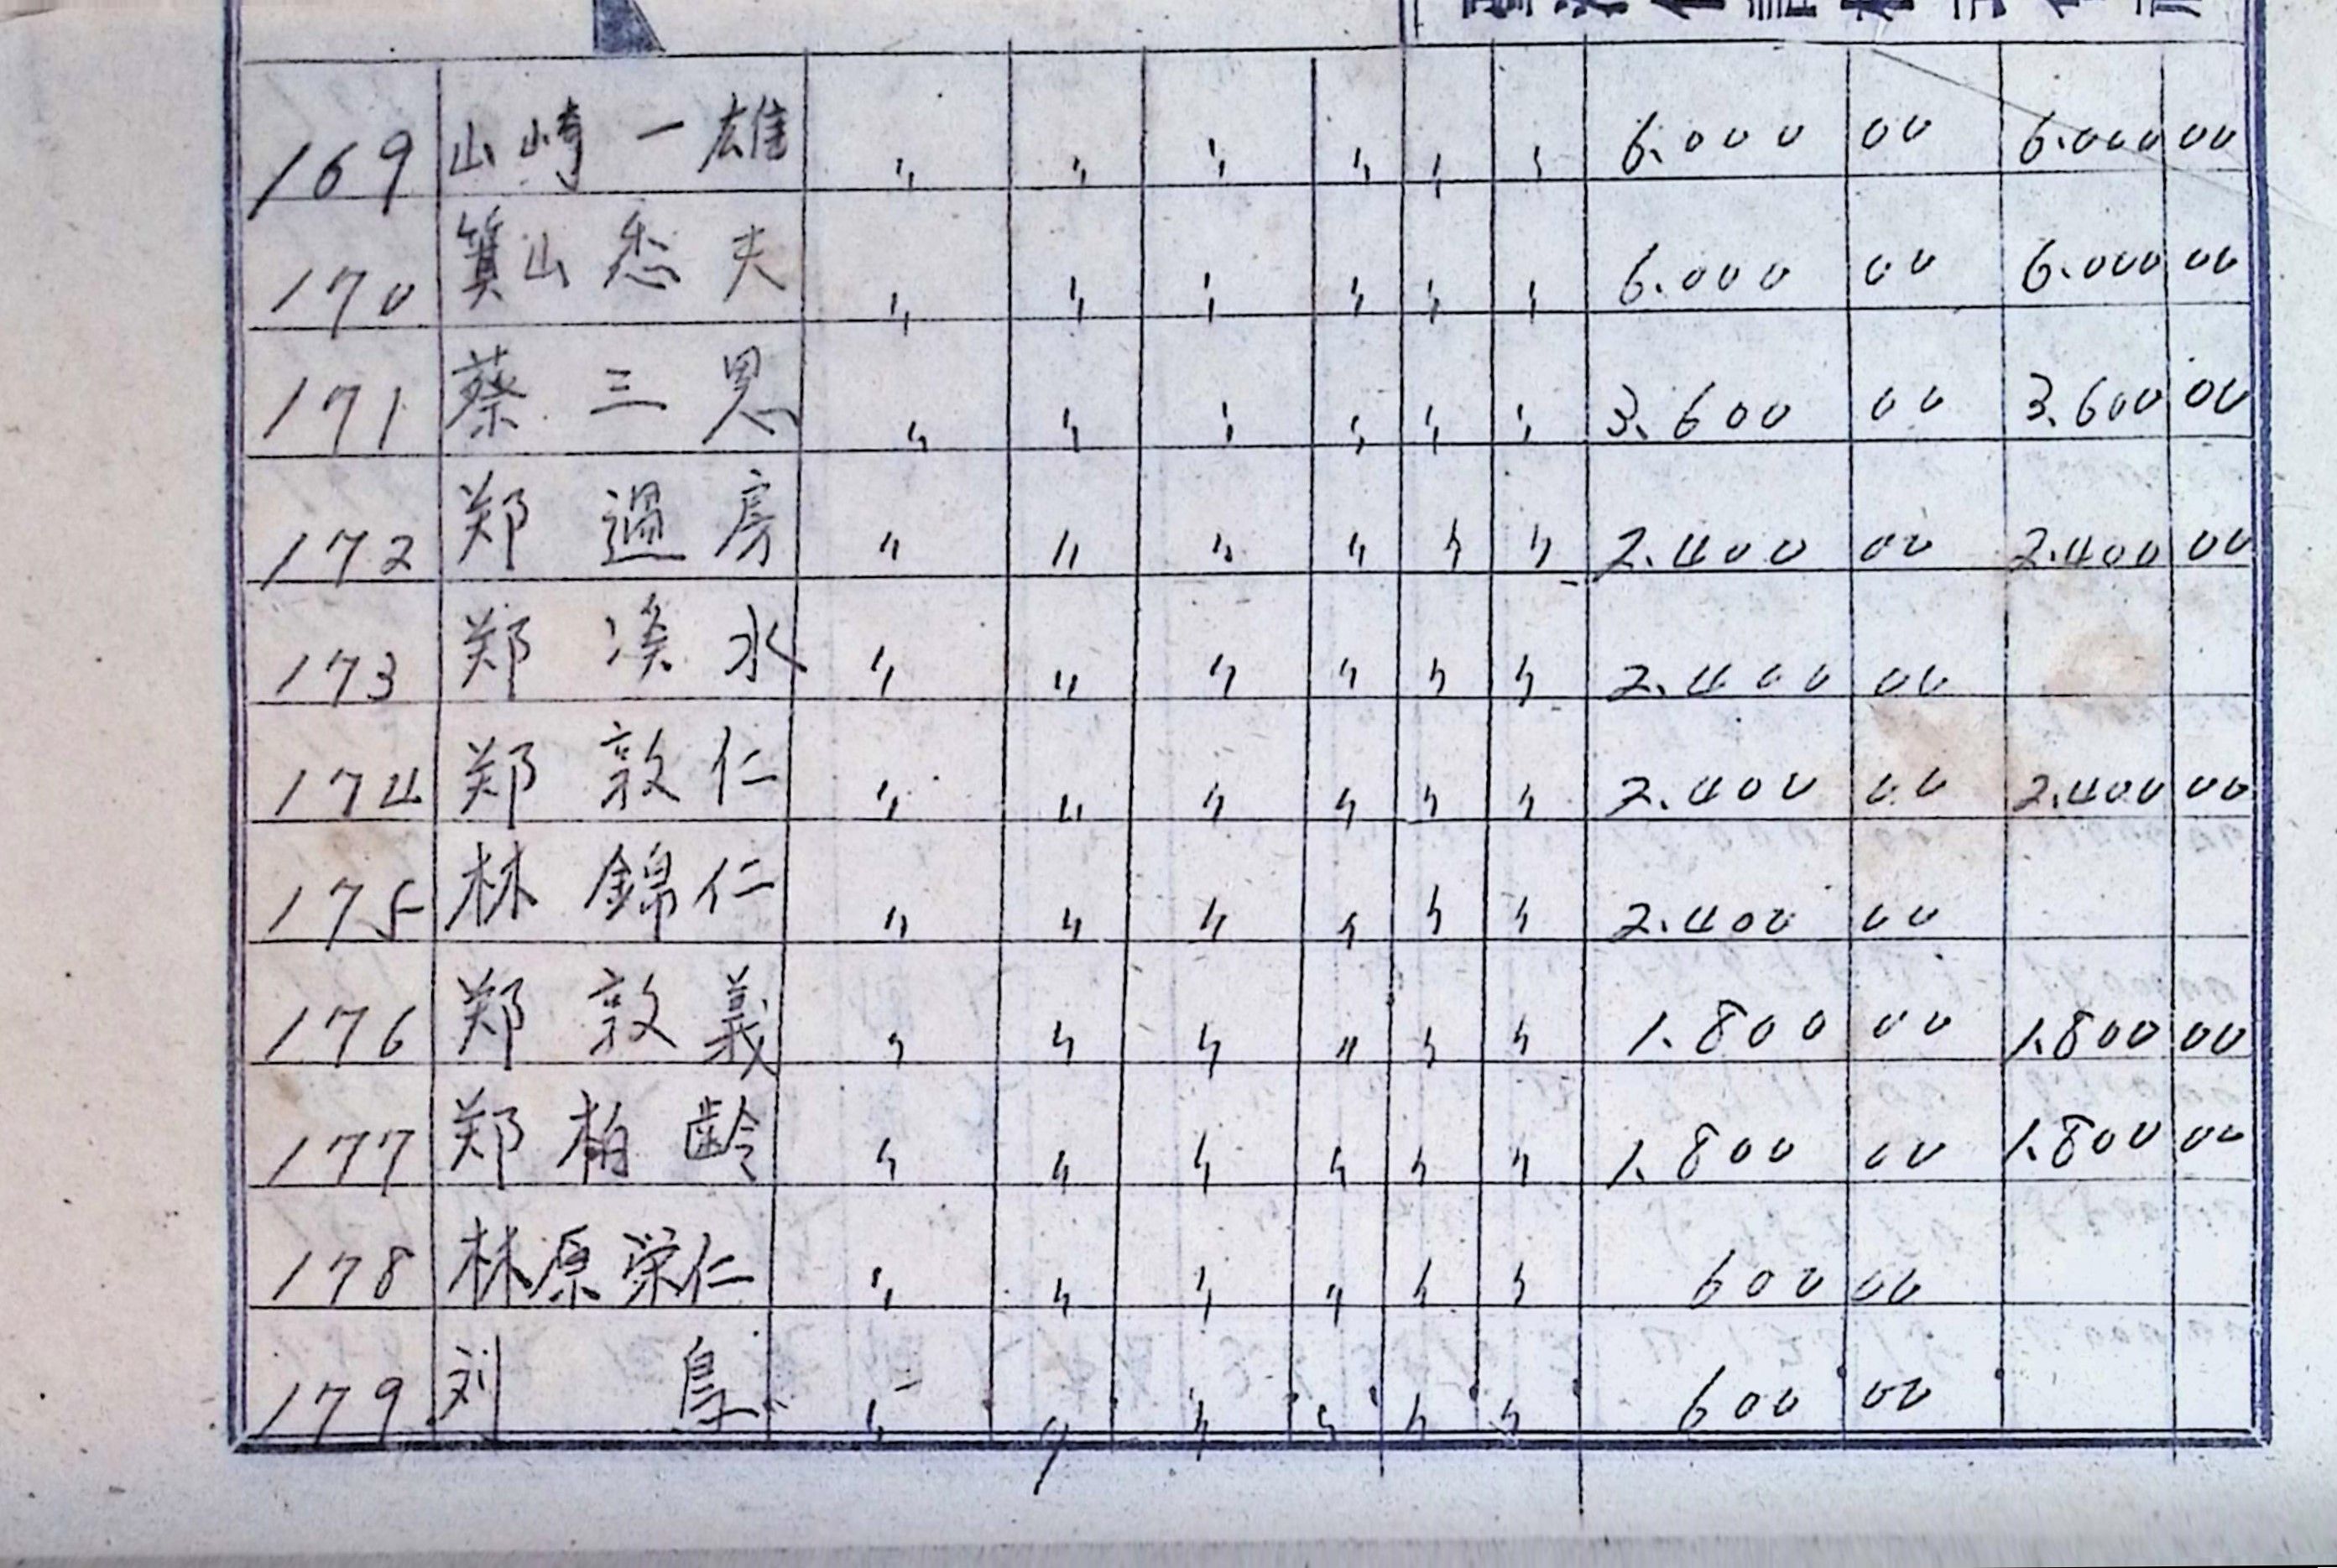 169 山崎一雄 〃 〃 〃 〃 〃 〃 6.000 00 6.000 00
170 箕山悉夫 〃 〃 〃 〃 〃 〃 6.000 00 6.000 00
171 蔡三恩 〃 〃 〃 〃 〃 〃 3.600 00 3.600 00
172 郑過房 〃 〃 〃 〃 〃 〃 2.400 00 2.400 00
173 郑溪水 〃 〃 〃 〃 〃 〃 2.400 00
174 郑敦仁 〃 〃 〃 〃 〃 〃 2.400 00 2.400 00
175 林錦仁 〃 〃 〃 〃 〃 〃 2.400 00
176 郑敦義 〃 〃 〃 〃 〃 〃 1.800 00 1.800 00
177 郑柏齢 〃 〃 〃 〃 〃 〃 1.800 00 1.800 00
178 林原栄仁 〃 〃 〃 〃 〃 〃 600 00
179 刘 〃 〃 〃 〃 〃 〃 600 00